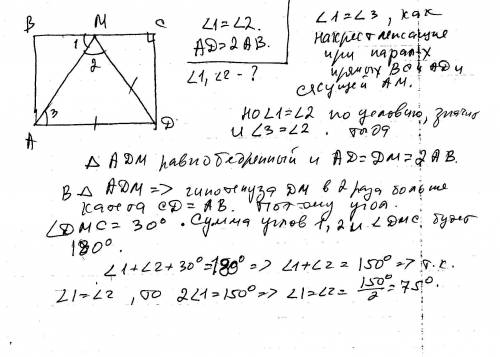 B M C
1
2
3
A D
∠1=∠2.
AD=2AB.
∠1,∠2-?
∠1=∠3, как
накрест лежащие
при парал-х
прямых BC и AD и
секущей AM.
но ∠1=∠2 по условию, значит
и ∠3=∠2. тогда
△ ADM равнобедренный и AD=DM=2AB.
В △ ADM => гипотенуза DM в 2 раза больше
катета CD=AB. Поэтому угол.
∠DMC=30°. Сумма углов 1, 2 и ∠DMC будет
180°.
∠1+∠2+30°=180° => ∠1+∠2=150° => т.к.
∠1=∠2, то 2∠1=150° => ∠1=∠2=150°/2=75°.